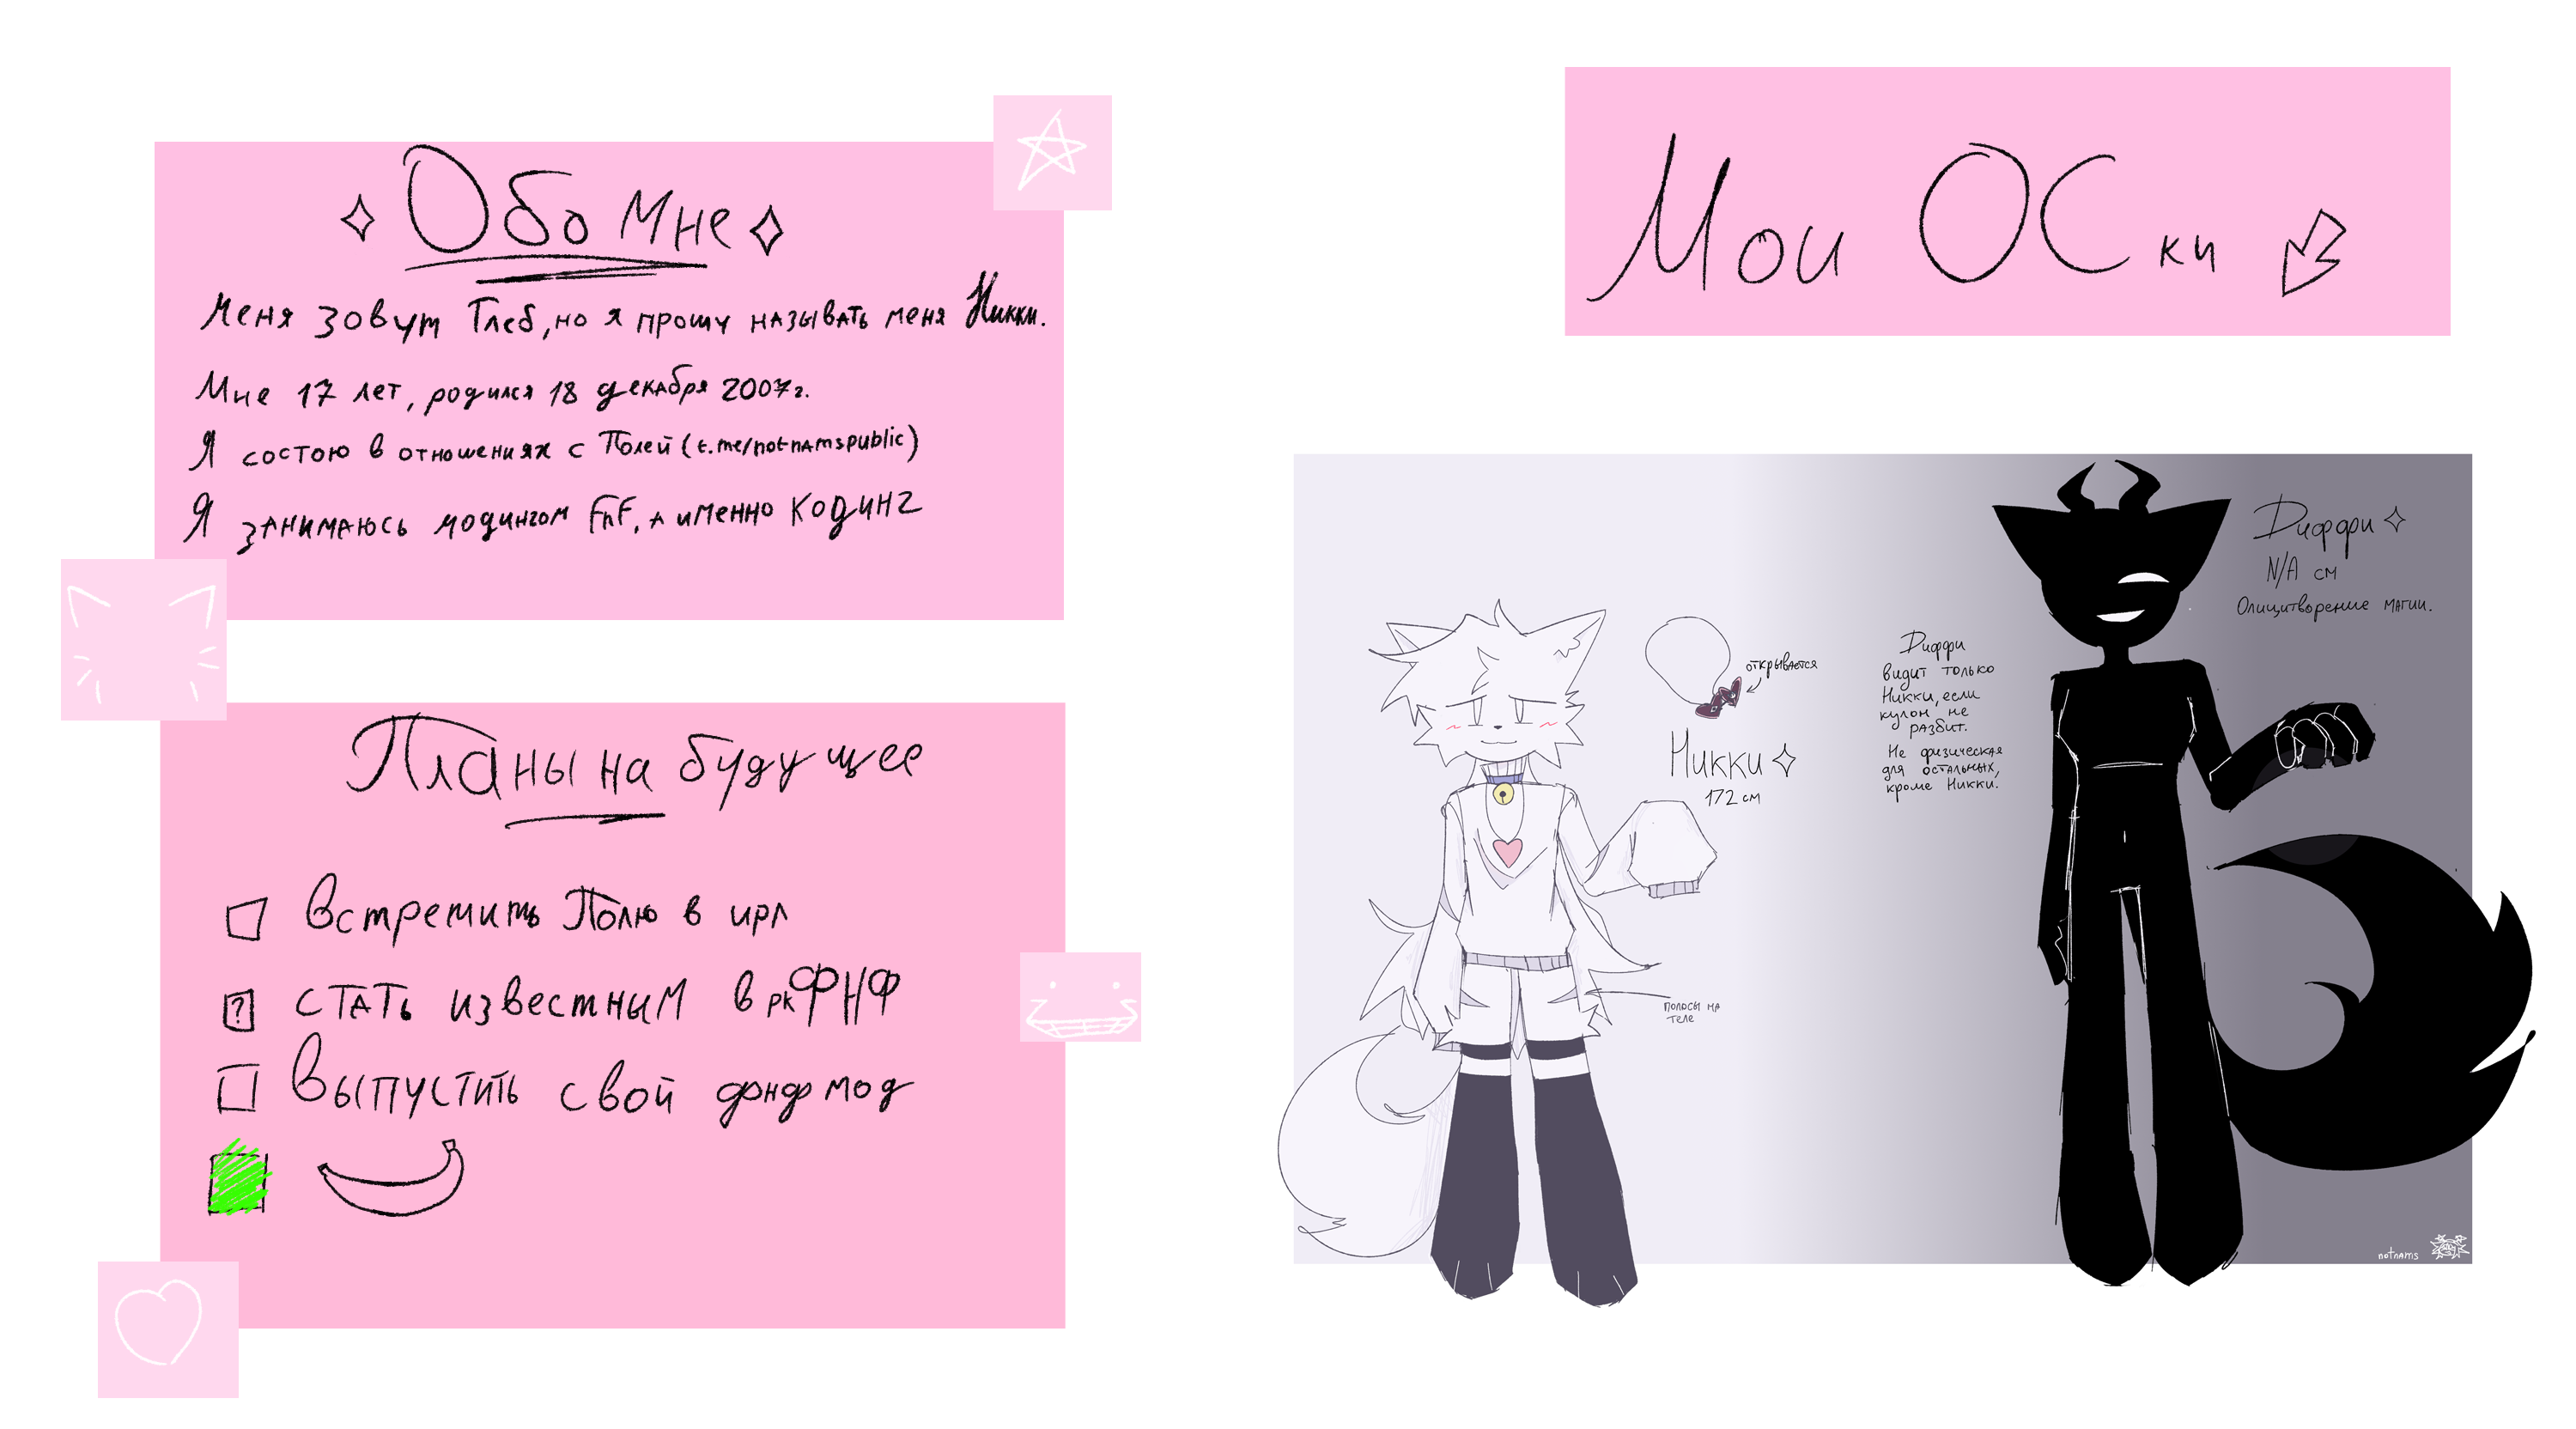 Обо мне
Меня зовут Глеб, но я прошу называть меня Никки.
Мне 17 лет, родился 18 декабря 2007г.
Я состою в отношениях с Полей (t.me/notnamspublic)
Я занимаюсь модингом FnF, а именно кодинг
Планы на будущее
встретить Полю в ирл
? стать известным в рк ФНФ
Выпустить свой фнф мод
Мои ОСки
открывается
Никки
172 см
полосы на
теле
Диффри
видит только
Никки, если
кулон не
разбит.
Не физическая
для остальных,
кроме Никки.
Диффри
N/A см
Олицитворение магии.
notnams